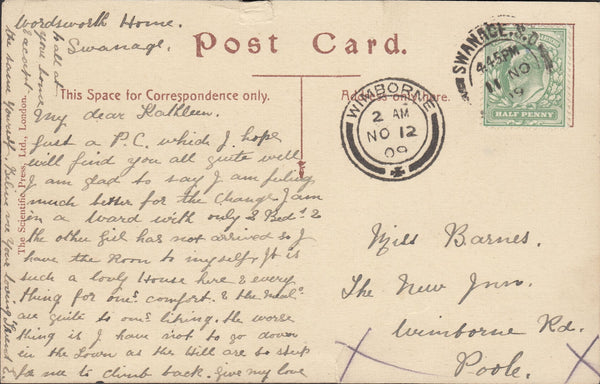 Wordsworth Home.
Swanage.
Post Card.
This Space for Correspondence only.
Address only here.
The Scientific Press, Ltd., London.
SWANAGE. S.O
4.45PM
11 NO
09
WIMBORNE
2 AM
NO 12
09
HALF PENNY
My dear Kathleen.
Just a P.C. which I hope
will find you all quite well
I am glad to say I am feling
much better for the Change I am
in a Ward with only 2 Beds &
the other Girl has not arrived so I
have the Room to myself, It is
such a lovly House here & every
thing for ones comfort. & the meals
are quite to ones liking. the worse
thing is I have not to go down
in the Town as the Hill are so steep
for me to climb back. Give my love
to all at
your home
& accept
the same yourself, Believe me your loving Friend
Miss Barnes.
The New Inn.
Wimborne Rd.
Poole.